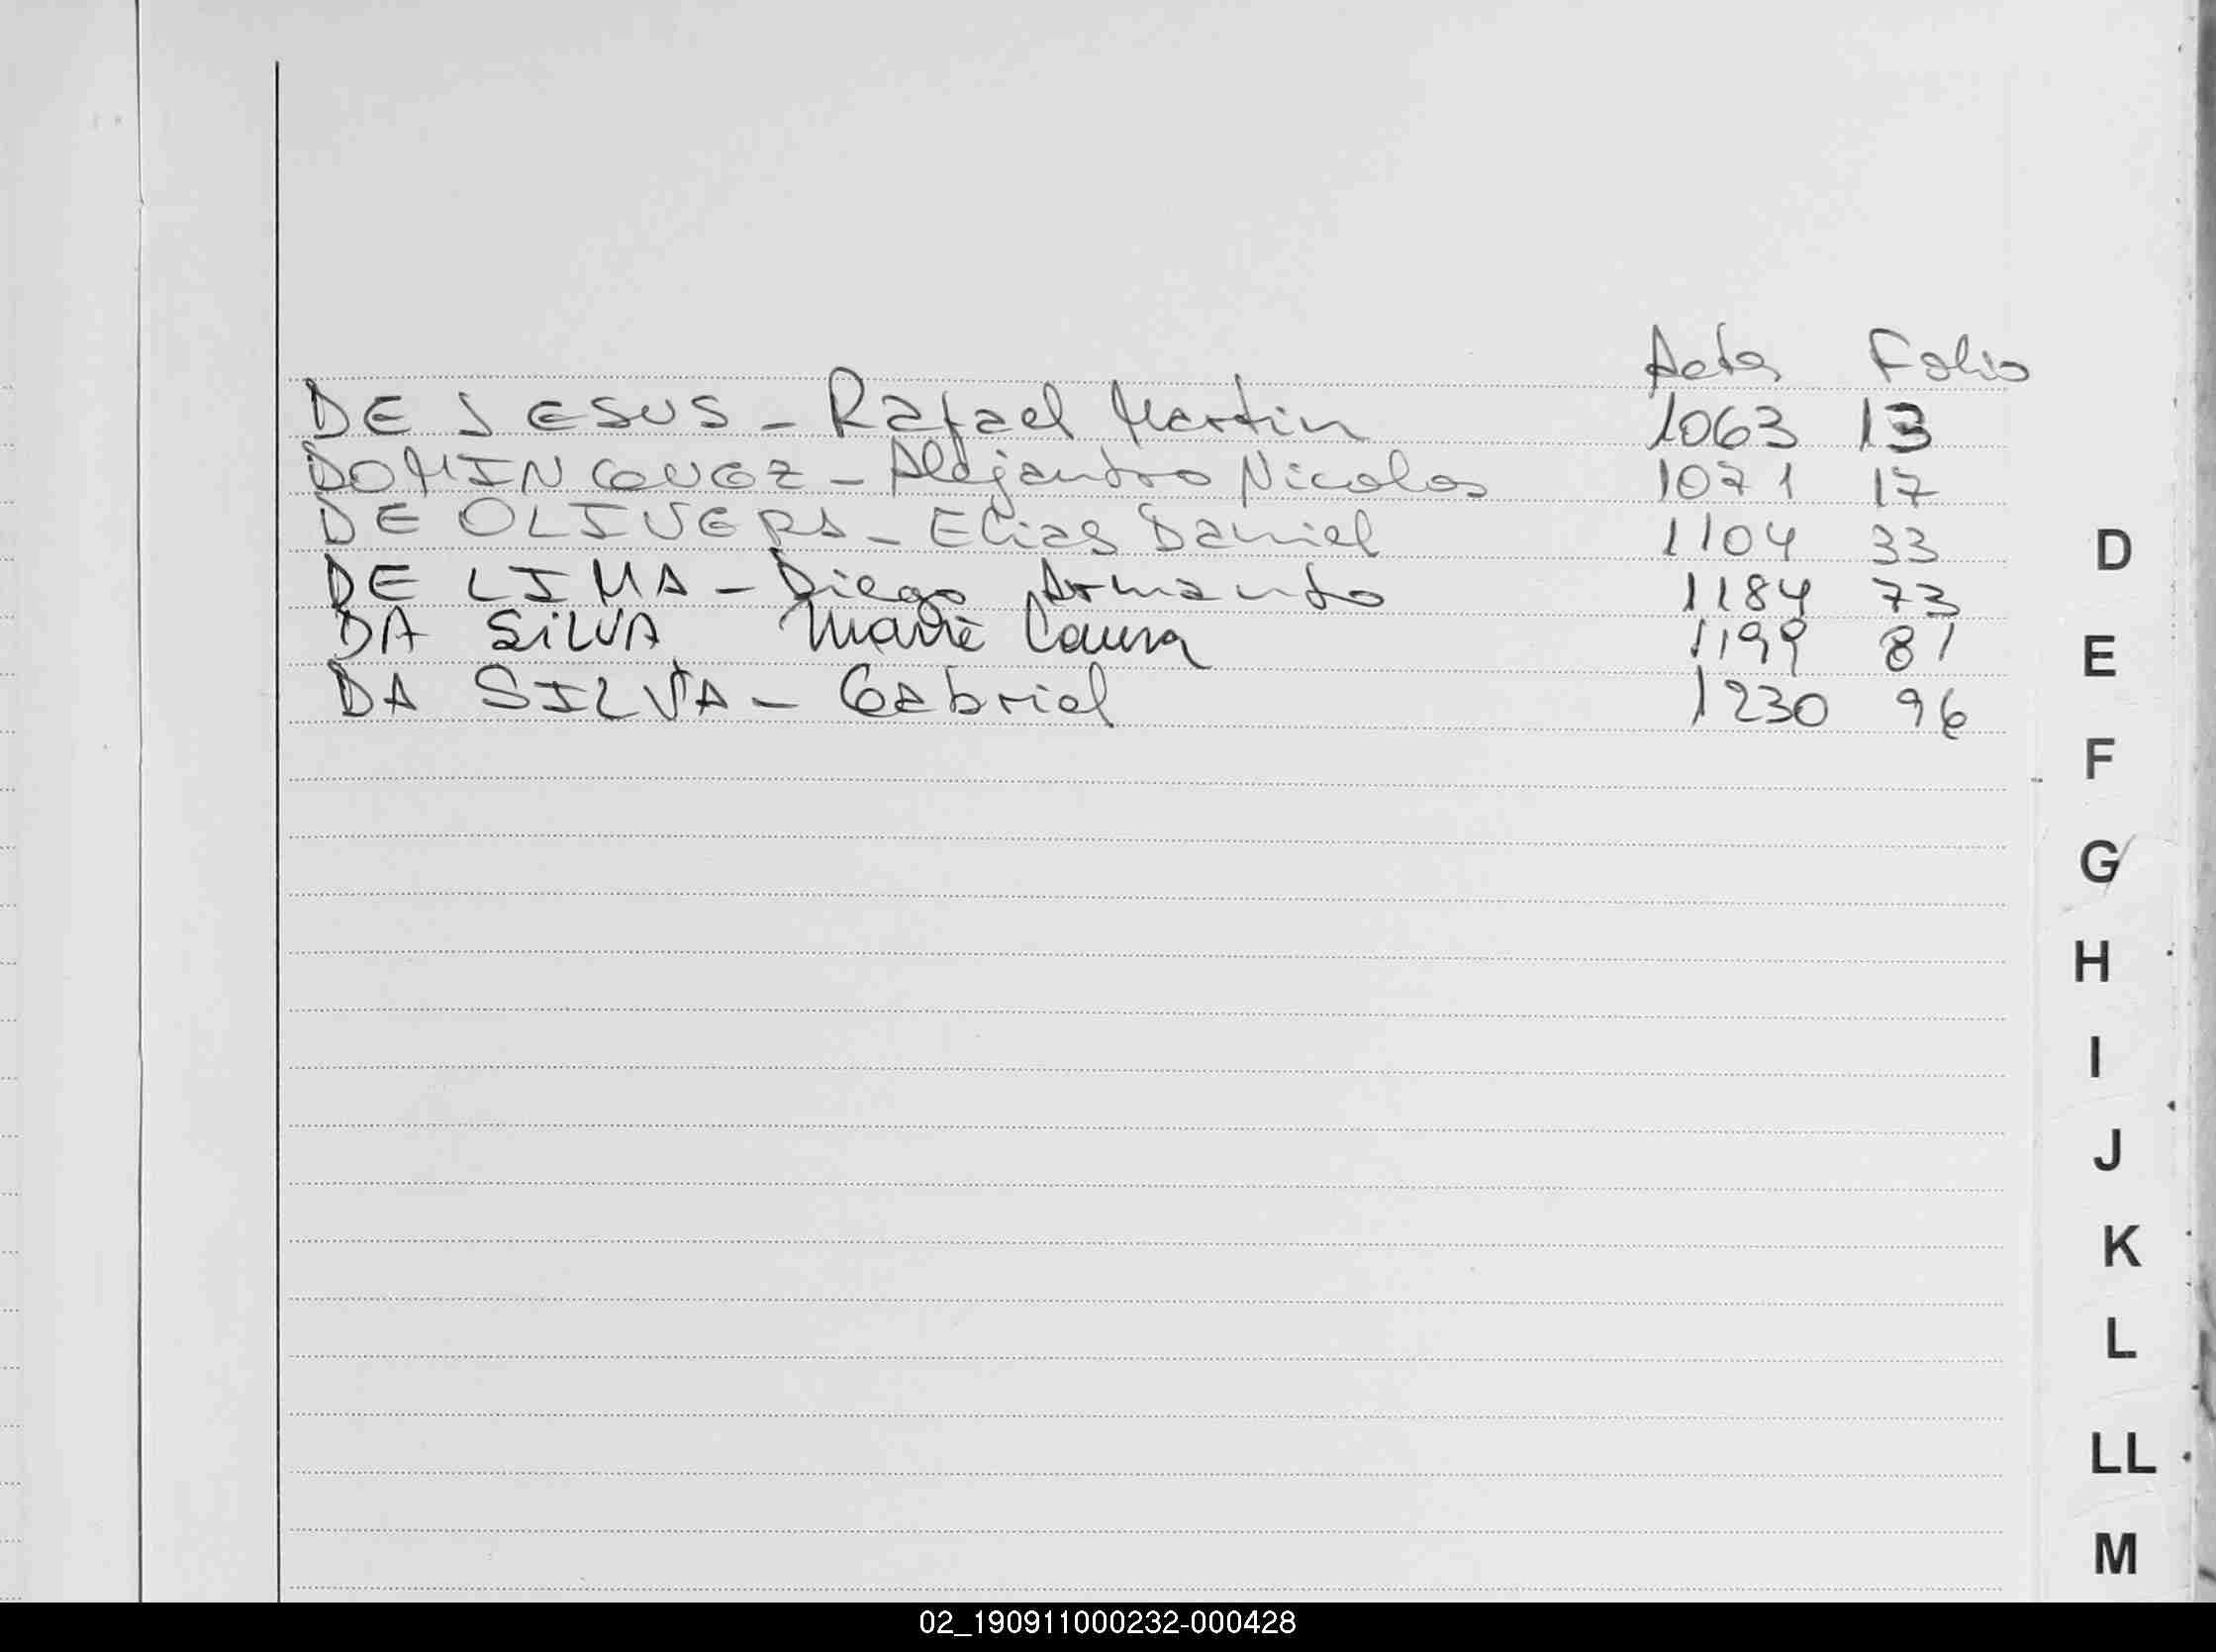 Acta Folio
DE JESUS - Rafael Martin 1063 13
DOMINGUEZ - Alejandro Nicolas 1071 17
DE OLIVERA - Elias Daniel 1104 33
DE LIMA - Diego Armando 1184 73
DA SiLVA Maria Laura 1199 81
DA SILVA - Gabriel 1230 96
D
E
F
G
H
I
J
K
L
LL
M
02_190911000232-000428